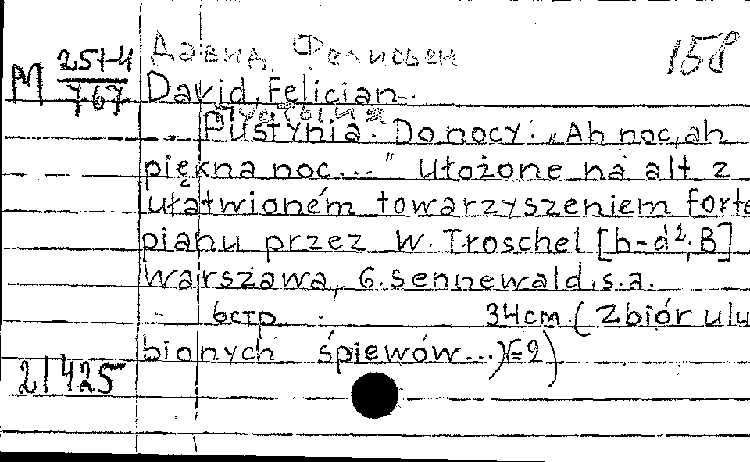 Давид, Фелисьен 158
М 251-4
767
David, Felician.
Пустыня
Pustynia. Do nocy: „Ah noc, ah
piękna noc..." Ułożone na alt z
ułatwioném towarzyszeniem forte
pianu przez W. Troschel [h-d²; B]
Warszawa, G. Sennewald, s.a.
6 стр. 34 cm. (Zbiór ulu
bionych śpiewów... №2)
21425